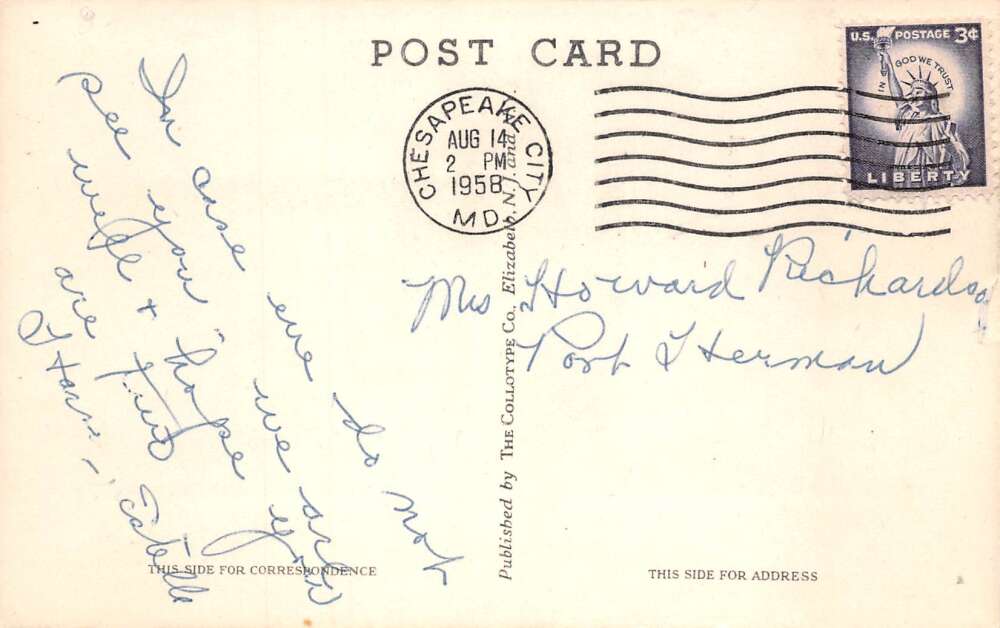 POST CARD
U.S. POSTAGE 3¢
IN GOD WE TRUST
LIBERTY
CHESAPEAKE CITY
AUG 14
2 PM
1958
MD.
In case we do not
see you we are
well & hope you
are two
Estelle
Mrs Howard Richardson
Port Herman
Published by THE COLLOTYPE Co., Elizabeth, N. J. and
THIS SIDE FOR CORRESPONDENCE
THIS SIDE FOR ADDRESS